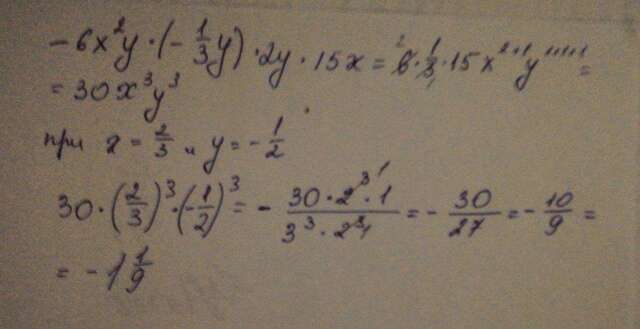 -6x²y·(-1/3y)·2y·15x = 6·1/3·15x²⁺¹y¹⁺¹⁺¹ =
= 30x³y³
при x = 2/3 и y = -1/2
30·(2/3)³·(-1/2)³ = - 30·2³·1/3³·2³ = - 30/27 = - 10/9 =
= -1 1/9